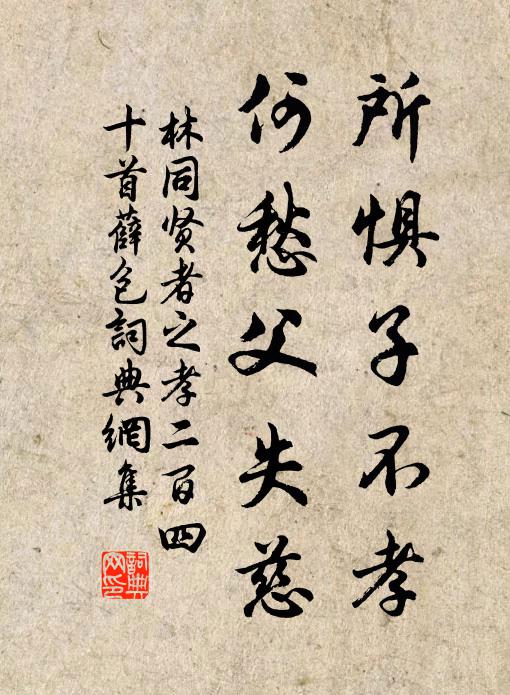 所惧子不孝
何愁父失慈
林同贤者之孝二百四
十首薛包詞典網集
詞典网印